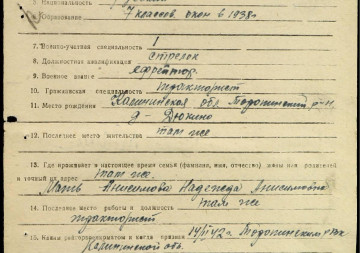 Национальность
6. Образование 7 классов, окон. в 1938 г
7. Военно-учетная специальность 1
8. Должностная квалификация стрелок
9. Военное звание ефрейтор
10. Гражданская специальность тракторист
11. Место рождения Калининская обл.
д. Дюкино
12. Последнее место жительства там же
13. Где проживает в настоящее время семья (фамилия, имя, отчество) жены или родителей
и точный их адрес там же
Мать Анисимова Надежда Анисимовна
там же
14. Последнее место работы и должность
тракторист
15. Каким райгорвоенкоматом и когда призван
Калининской обл.